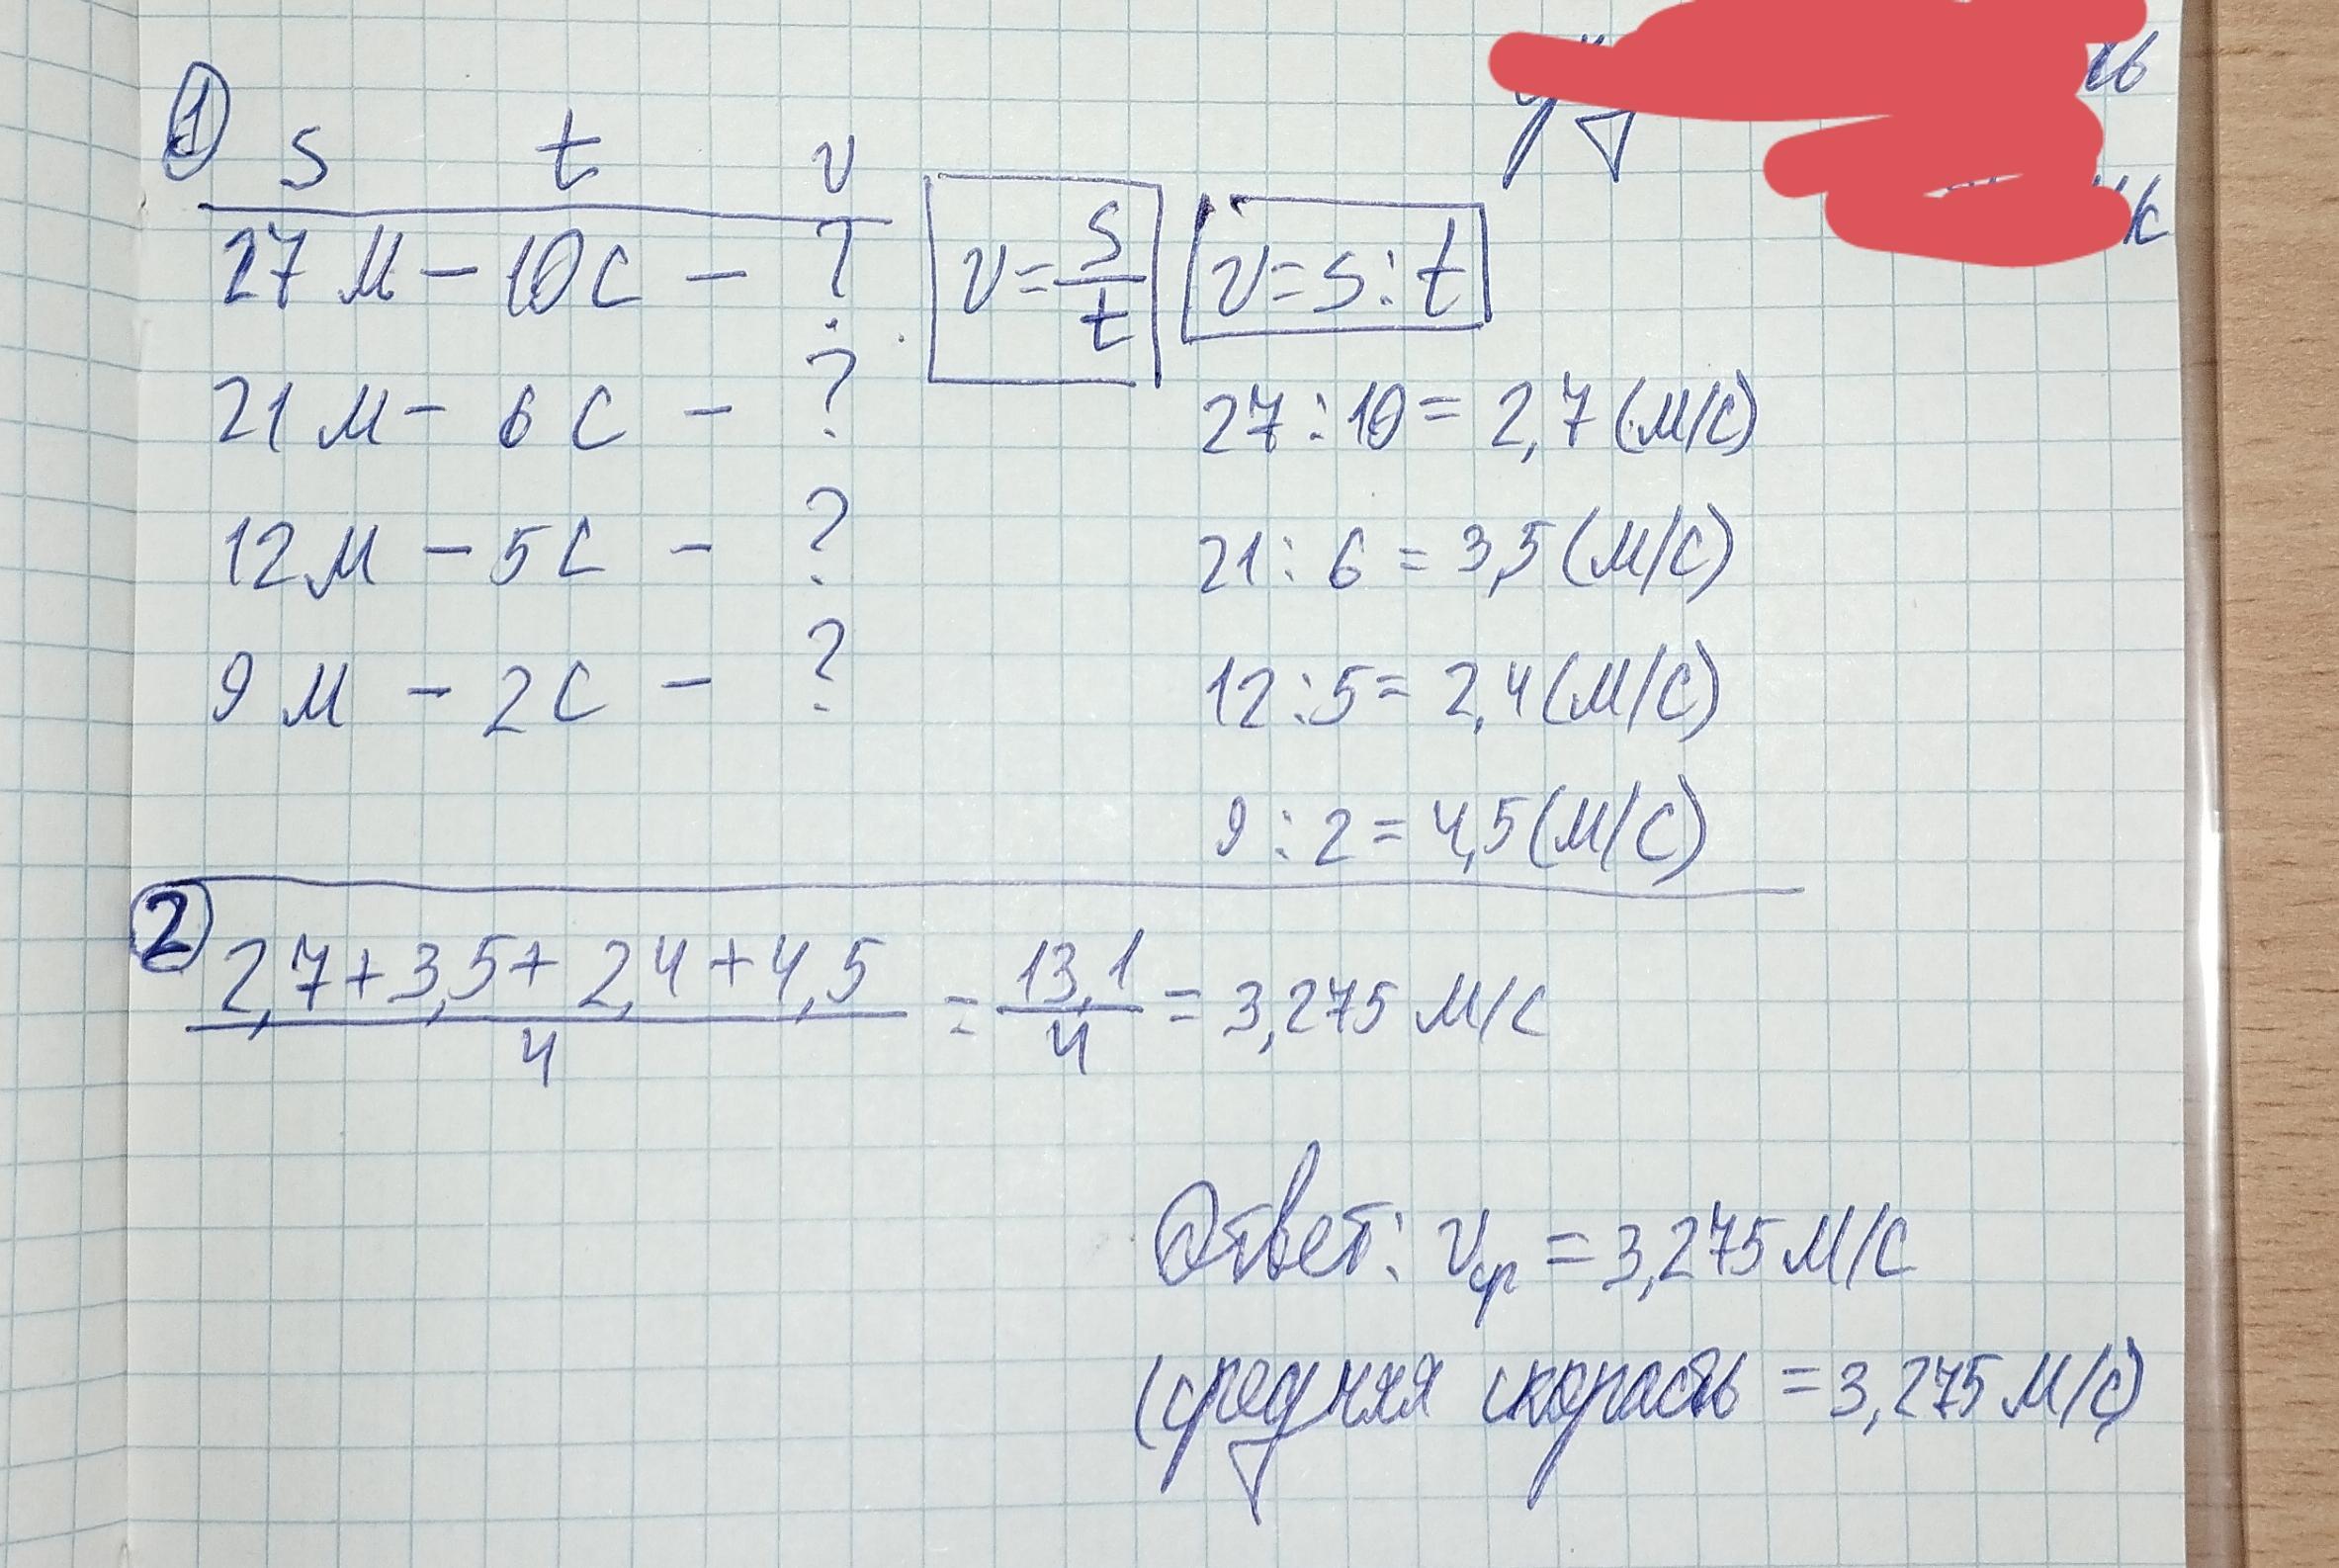 1 s t v
27 м – 10 с – ?
21 м – 6 с – ?
12 м – 5 с – ?
9 м – 2 с – ?
v = s/t
v = s : t
27 : 10 = 2,7 (м/с)
21 : 6 = 3,5 (м/с)
12 : 5 = 2,4 (м/с)
9 : 2 = 4,5 (м/с)
2 (2,7 + 3,5 + 2,4 + 4,5)/4 = 13,1/4 = 3,275 м/с
Ответ: vср = 3,275 м/с
(средняя скорость = 3,275 м/с)